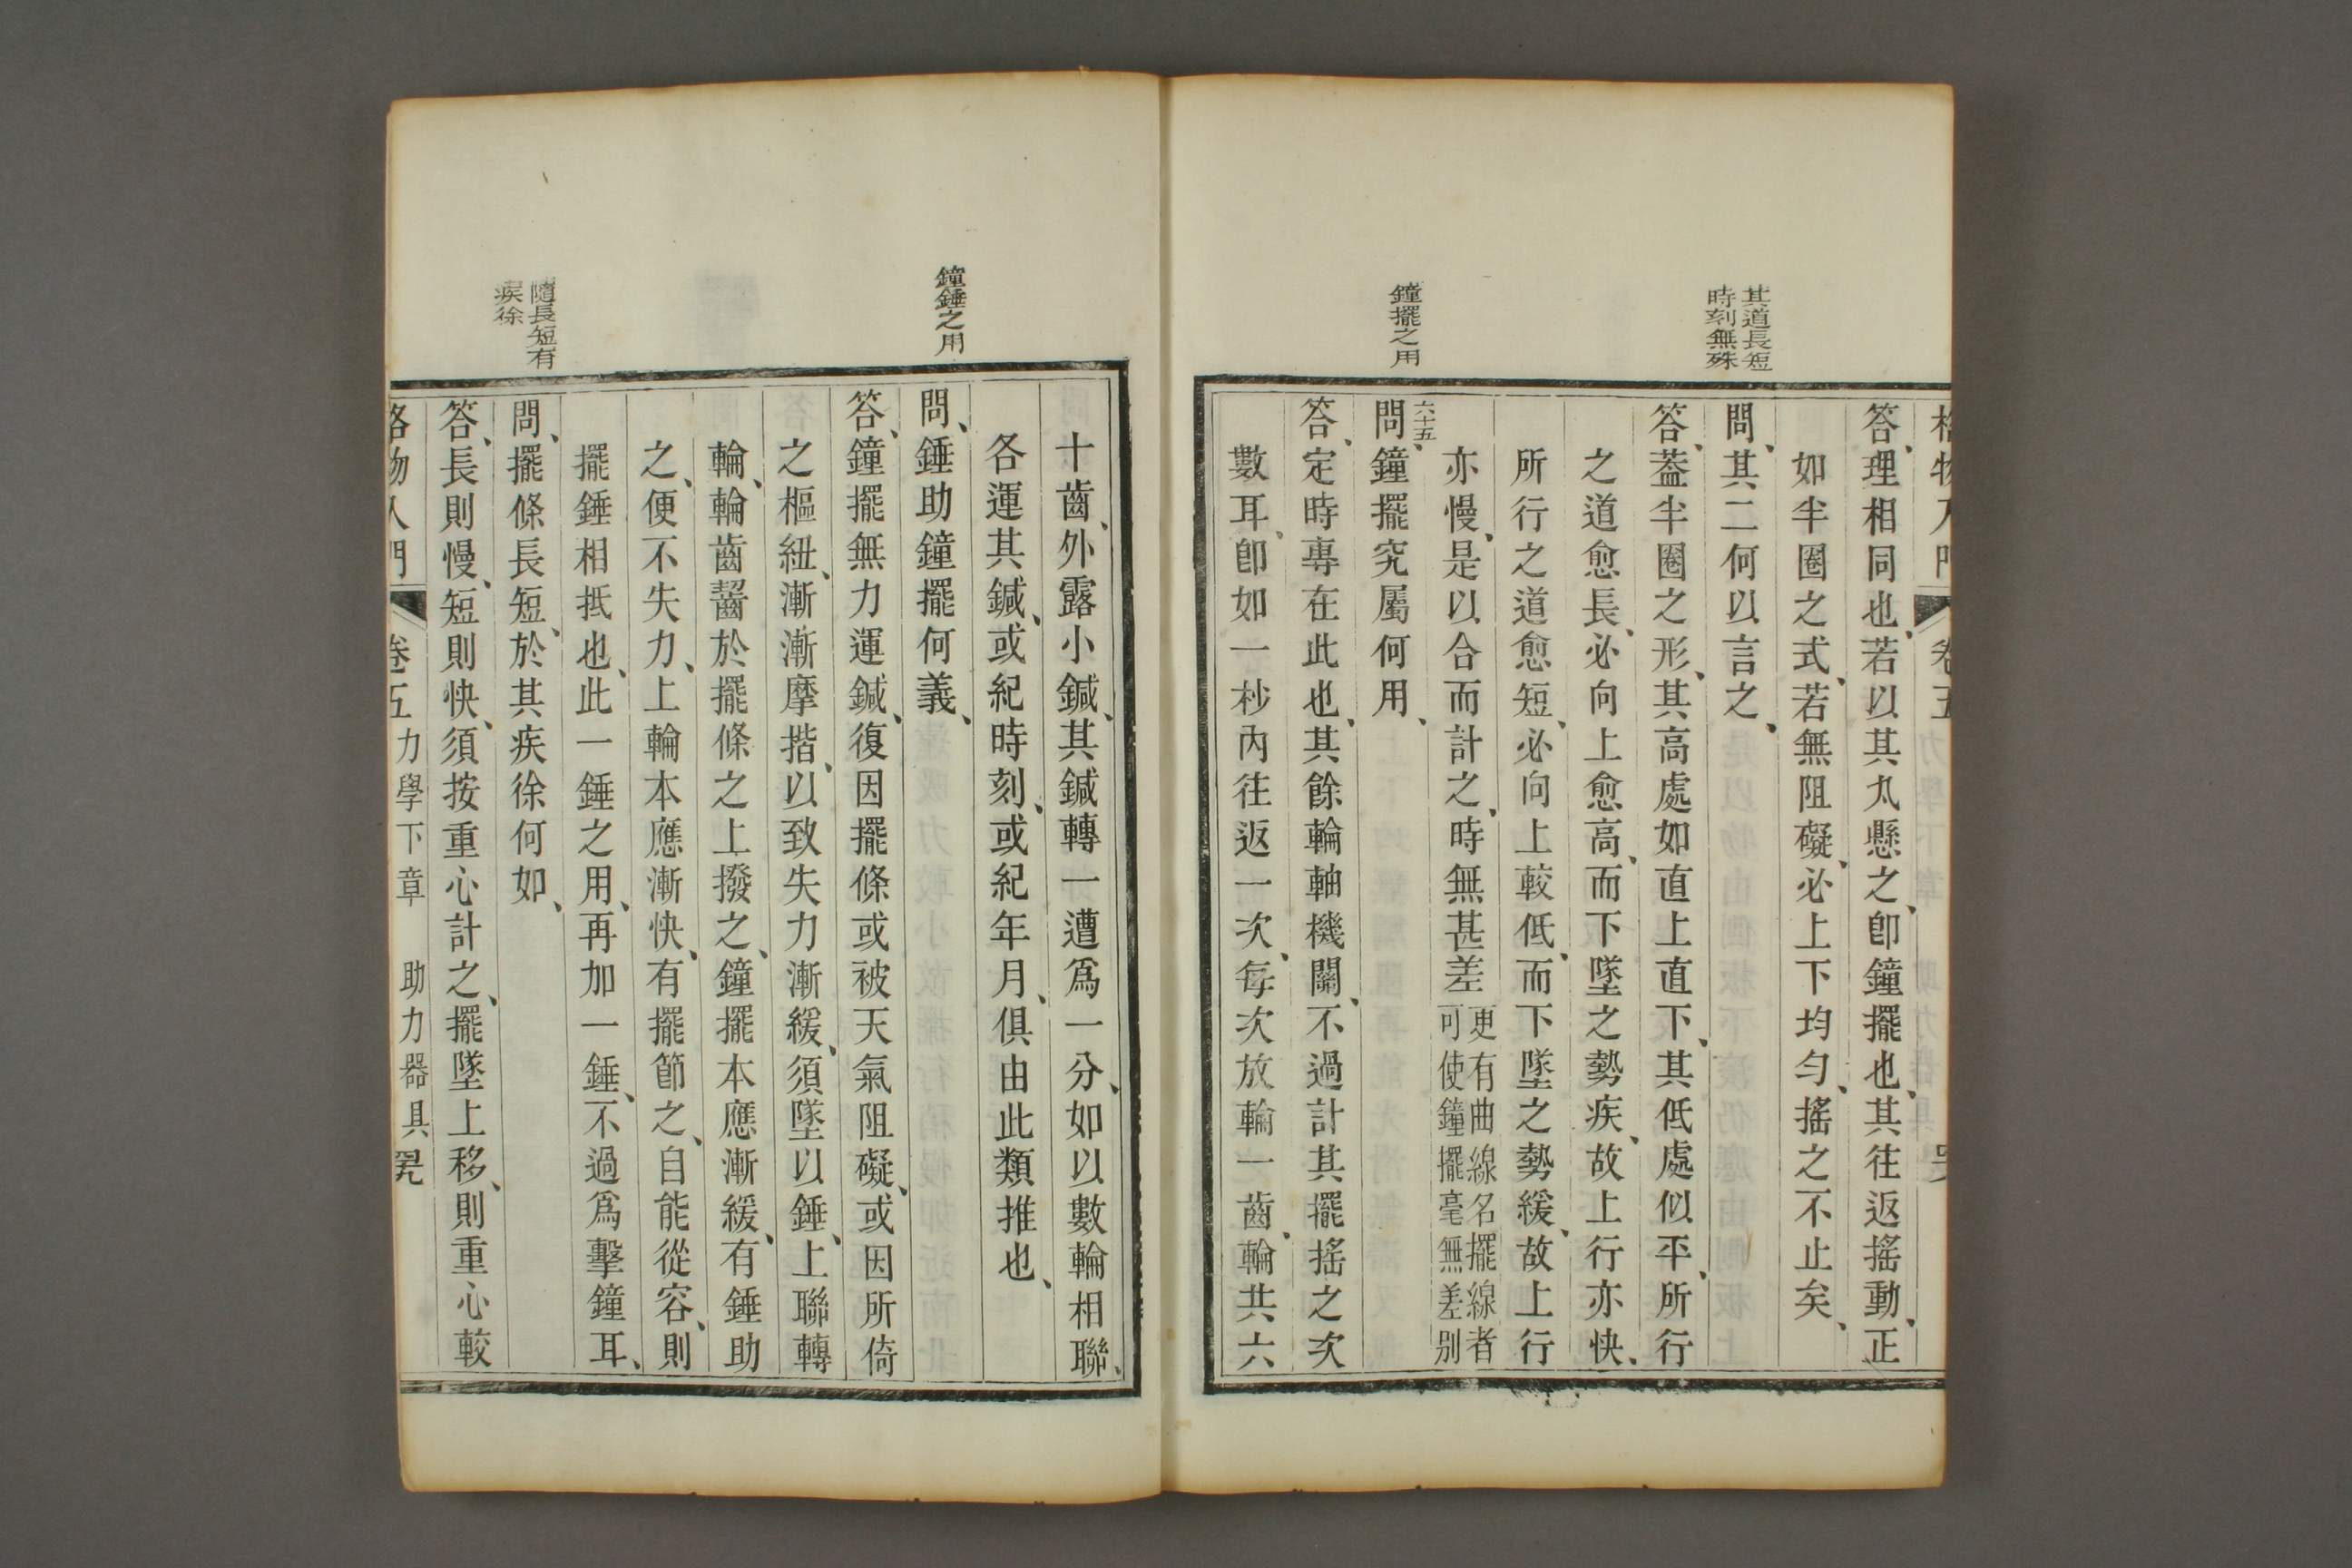 格物入門 卷五
其道長短
時刻無殊
鐘擺之用
答、理相同也、若以其丸懸之、卽鐘擺也、其往返搖動、正
如半圈之式、若無阻礙、必上下均勻、搖之不止矣、
問、其二何以言之、
答、葢半圈之形、其高處如直上直下、其低處似平、所行
之道愈長、必向上愈高、而下墜之勢疾、故上行亦快、
所行之道愈短、必向上較低、而下墜之勢緩、故上行
亦慢、是以合而計之、時無甚差
更有曲線名擺線者
可使鐘擺毫無差别
六十五
問、鐘擺究屬何用、
答、定時專在此也、其餘輪軸機關、不過計其擺搖之次
數耳、卽如一杪內往返一次、每次放輪一齒、輪共六
鐘錘之用
隨長短有
疾徐
十齒、外露小鍼、其鍼轉一遭爲一分、如以數輪相聯、
各運其鍼、或紀時刻、或紀年月、俱由此類推也、
問、錘助鐘擺何義、
答、鐘擺無力運鍼、復因擺條或被天氣阻礙、或因所倚
之樞紐、漸漸摩揩、以致失力漸緩、須墜以錘、上聯轉
輪、輪齒齧於擺條之上撥之、鐘擺本應漸緩、有錘助
之、便不失力、上輪本應漸快、有擺節之、自能從容、則
擺錘相抵也、此一錘之用、再加一錘、不過爲擊鐘耳、
問、擺條長短、於其疾徐何如、
答、長則慢、短則快、須按重心計之、擺墜上移、則重心較
格物入門 卷五 力學下章 助力器具